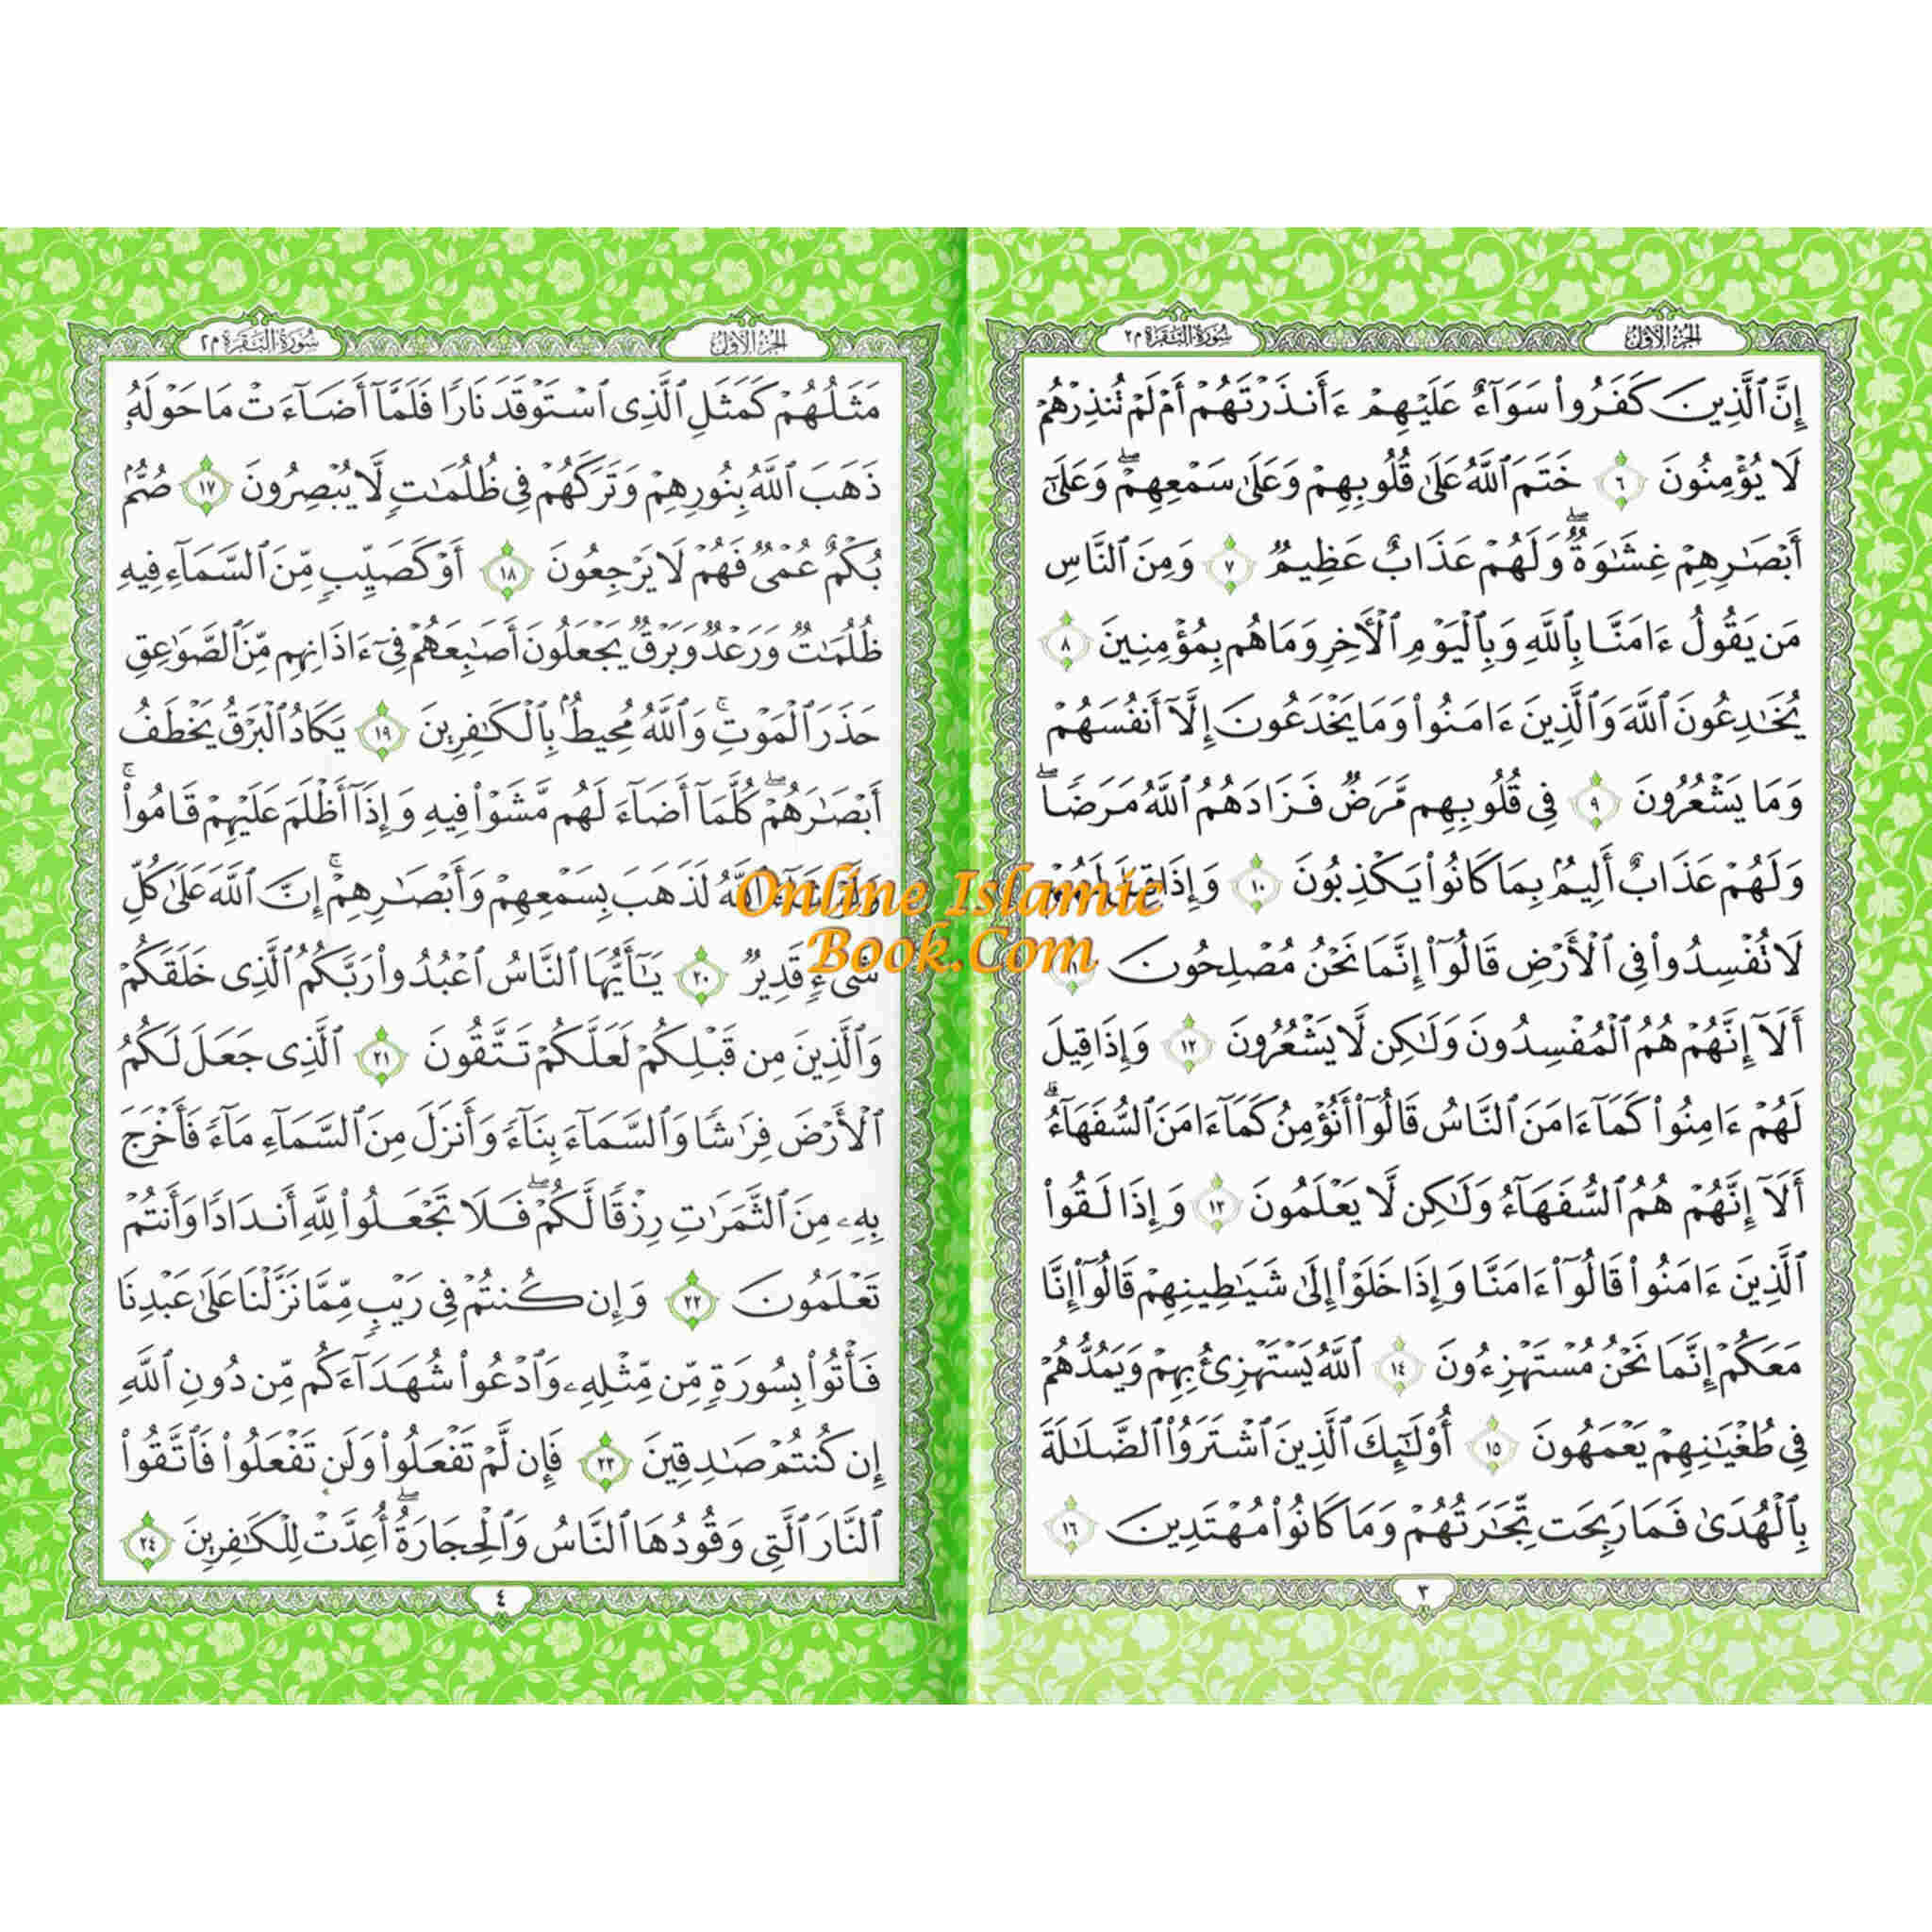 الجزء الأول
سورة البقرة م٢
إِنَّ ٱلَّذِينَ كَفَرُوا۟ سَوَآءٌ عَلَيْهِمْ ءَأَنذَرْتَهُمْ أَمْ لَمْ تُنذِرْهُمْ
لَا يُؤْمِنُونَ ٦ خَتَمَ ٱللَّهُ عَلَىٰ قُلُوبِهِمْ وَعَلَىٰ سَمْعِهِمْ ۖ وَعَلَىٰٓ
أَبْصَٰرِهِمْ غِشَٰوَةٌ ۖ وَلَهُمْ عَذَابٌ عَظِيمٌ ٧ وَمِنَ ٱلنَّاسِ
مَن يَقُولُ ءَامَنَّا بِٱللَّهِ وَبِٱلْيَوْمِ ٱلْأَخِرِ وَمَا هُم بِمُؤْمِنِينَ ٨
يُخَٰدِعُونَ ٱللَّهَ وَٱلَّذِينَ ءَامَنُوا۟ وَمَا يَخْدَعُونَ إِلَّآ أَنفُسَهُمْ
وَمَا يَشْعُرُونَ ٩ فِى قُلُوبِهِم مَّرَضٌ فَزَادَهُمُ ٱللَّهُ مَرَضًا ۖ
وَلَهُمْ عَذَابٌ أَلِيمٌۢ بِمَا كَانُوا۟ يَكْذِبُونَ ١٠ وَإِذَا قِيلَ لَهُمْ
لَا تُفْسِدُوا۟ فِى ٱلْأَرْضِ قَالُوٓا۟ إِنَّمَا نَحْنُ مُصْلِحُونَ ١١
أَلَآ إِنَّهُمْ هُمُ ٱلْمُفْسِدُونَ وَلَٰكِن لَّا يَشْعُرُونَ ١٢ وَإِذَا قِيلَ
لَهُمْ ءَامِنُوا۟ كَمَآ ءَامَنَ ٱلنَّاسُ قَالُوٓا۟ أَنُؤْمِنُ كَمَآ ءَامَنَ ٱلسُّفَهَآءُ ۗ
أَلَآ إِنَّهُمْ هُمُ ٱلسُّفَهَآءُ وَلَٰكِن لَّا يَعْلَمُونَ ١٣ وَإِذَا لَقُوا۟
ٱلَّذِينَ ءَامَنُوا۟ قَالُوٓا۟ ءَامَنَّا وَإِذَا خَلَوْا۟ إِلَىٰ شَيَٰطِينِهِمْ قَالُوٓا۟ إِنَّا
مَعَكُمْ إِنَّمَا نَحْنُ مُسْتَهْزِءُونَ ١٤ ٱللَّهُ يَسْتَهْزِئُ بِهِمْ وَيَمُدُّهُمْ
فِى طُغْيَٰنِهِمْ يَعْمَهُونَ ١٥ أُو۟لَٰٓئِكَ ٱلَّذِينَ ٱشْتَرَوُا۟ ٱلضَّلَٰلَةَ
بِٱلْهُدَىٰ فَمَا رَبِحَت تِّجَٰرَتُهُمْ وَمَا كَانُوا۟ مُهْتَدِينَ ١٦
٣
الجزء الأول
سورة البقرة م٢
مَثَلُهُمْ كَمَثَلِ ٱلَّذِى ٱسْتَوْقَدَ نَارًا فَلَمَّآ أَضَآءَتْ مَا حَوْلَهُۥ
ذَهَبَ ٱللَّهُ بِنُورِهِمْ وَتَرَكَهُمْ فِى ظُلُمَٰتٍ لَّا يُبْصِرُونَ ١٧ صُمٌّۢ
بُكْمٌ عُمْىٌ فَهُمْ لَا يَرْجِعُونَ ١٨ أَوْ كَصَيِّبٍ مِّنَ ٱلسَّمَآءِ فِيهِ
ظُلُمَٰتٌ وَرَعْدٌ وَبَرْقٌ يَجْعَلُونَ أَصَٰبِعَهُمْ فِىٓ ءَاذَانِهِم مِّنَ ٱلصَّوَٰعِقِ
حَذَرَ ٱلْمَوْتِ ۚ وَٱللَّهُ مُحِيطٌۢ بِٱلْكَٰفِرِينَ ١٩ يَكَادُ ٱلْبَرْقُ يَخْطَفُ
أَبْصَٰرَهُمْ ۖ كُلَّمَآ أَضَآءَ لَهُم مَّشَوْا۟ فِيهِ وَإِذَآ أَظْلَمَ عَلَيْهِمْ قَامُوا۟ ۚ
وَلَوْ شَآءَ ٱللَّهُ لَذَهَبَ بِسَمْعِهِمْ وَأَبْصَٰرِهِمْ ۚ إِنَّ ٱللَّهَ عَلَىٰ كُلِّ
شَىْءٍ قَدِيرٌ ٢٠ يَٰٓأَيُّهَا ٱلنَّاسُ ٱعْبُدُوا۟ رَبَّكُمُ ٱلَّذِى خَلَقَكُمْ
وَٱلَّذِينَ مِن قَبْلِكُمْ لَعَلَّكُمْ تَتَّقُونَ ٢١ ٱلَّذِى جَعَلَ لَكُمُ
ٱلْأَرْضَ فِرَٰشًا وَٱلسَّمَآءَ بِنَآءً وَأَنزَلَ مِنَ ٱلسَّمَآءِ مَآءً فَأَخْرَجَ
بِهِۦ مِنَ ٱلثَّمَرَٰتِ رِزْقًا لَّكُمْ ۖ فَلَا تَجْعَلُوا۟ لِلَّهِ أَندَادًا وَأَنتُمْ
تَعْلَمُونَ ٢٢ وَإِن كُنتُمْ فِى رَيْبٍ مِّمَّا نَزَّلْنَا عَلَىٰ عَبْدِنَا
فَأْتُوا۟ بِسُورَةٍ مِّن مِّثْلِهِۦ وَٱدْعُوا۟ شُهَدَآءَكُم مِّن دُونِ ٱللَّهِ
إِن كُنتُمْ صَٰدِقِينَ ٢٣ فَإِن لَّمْ تَفْعَلُوا۟ وَلَن تَفْعَلُوا۟ فَٱتَّقُوا۟
ٱلنَّارَ ٱلَّتِى وَقُودُهَا ٱلنَّاسُ وَٱلْحِجَارَةُ ۖ أُعِدَّتْ لِلْكَٰفِرِينَ ٢٤
٤
Online Islamic
Book.Com